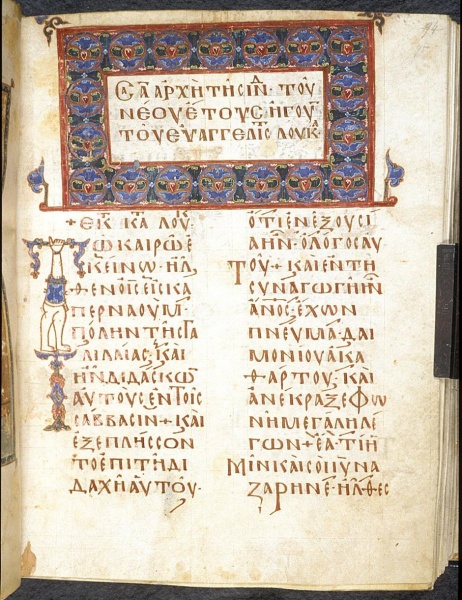 ΑΡΧΗ ΤΗϹ ΙΝΔ· ΤΟΥ
ΝΕΟΥ ΕΤΟΥϹ ΗΓΟΥΝ
ΤΟΥ ΕΥΑΓΓΕΛΙϹ ΛΟΥΚ
+ ΕΚ Τ ΚΑΤΑ ΛΟΥΚ
ΤΩ ΚΑΙΡΩ Ε
ΚΕΙΝΩ· ΗΛ
ΘΕΝ Ο ΙϹ ΕΙϹ ΚΑ
ΠΕΡΝΑΟΥΜ·
ΠΟΛΙΝ ΤΗϹ ΓΑ
ΛΙΛΑΙΑϹ· ΚΑΙ
ΗΝ ΔΙΔΑϹΚΩ
ΑΥΤΟΥϹ ΕΝ ΤΟΙϹ
ϹΑΒΒΑϹΙΝ + ΚΑΙ
ΕΞΕΠΛΗϹϹΟΝ
ΤΟ ΕΠΙ ΤΗ ΔΙ
ΔΑΧΗ ΑΥΤΟΥ·
ΟΤΙ ΕΝ ΕΞΟΥϹΙ
Α ΗΝ· Ο ΛΟΓΟϹ ΑΥ
ΤΟΥ + ΚΑΙ ΕΝ ΤΗ
ϹΥΝΑΓΩΓΗ ΗΝ
ΑΝΟϹ ΕΧΩΝ
ΠΝΕΥΜΑ ΔΑΙ
ΜΟΝΙΟΥ ΑΚΑ
ΘΑΡΤΟΥ· ΚΑΙ
ΑΝΕΚΡΑΞΕ ΦΩ
ΝΗ ΜΕΓΑΛΗ ΛΕ
ΓΩΝ + ΕΑ· ΤΙ Η
ΜΙΝ ΚΑΙ ϹΟΙ ΙΥ ΝΑ
ΖΑΡΗΝΕ· ΗΛΘΕϹ